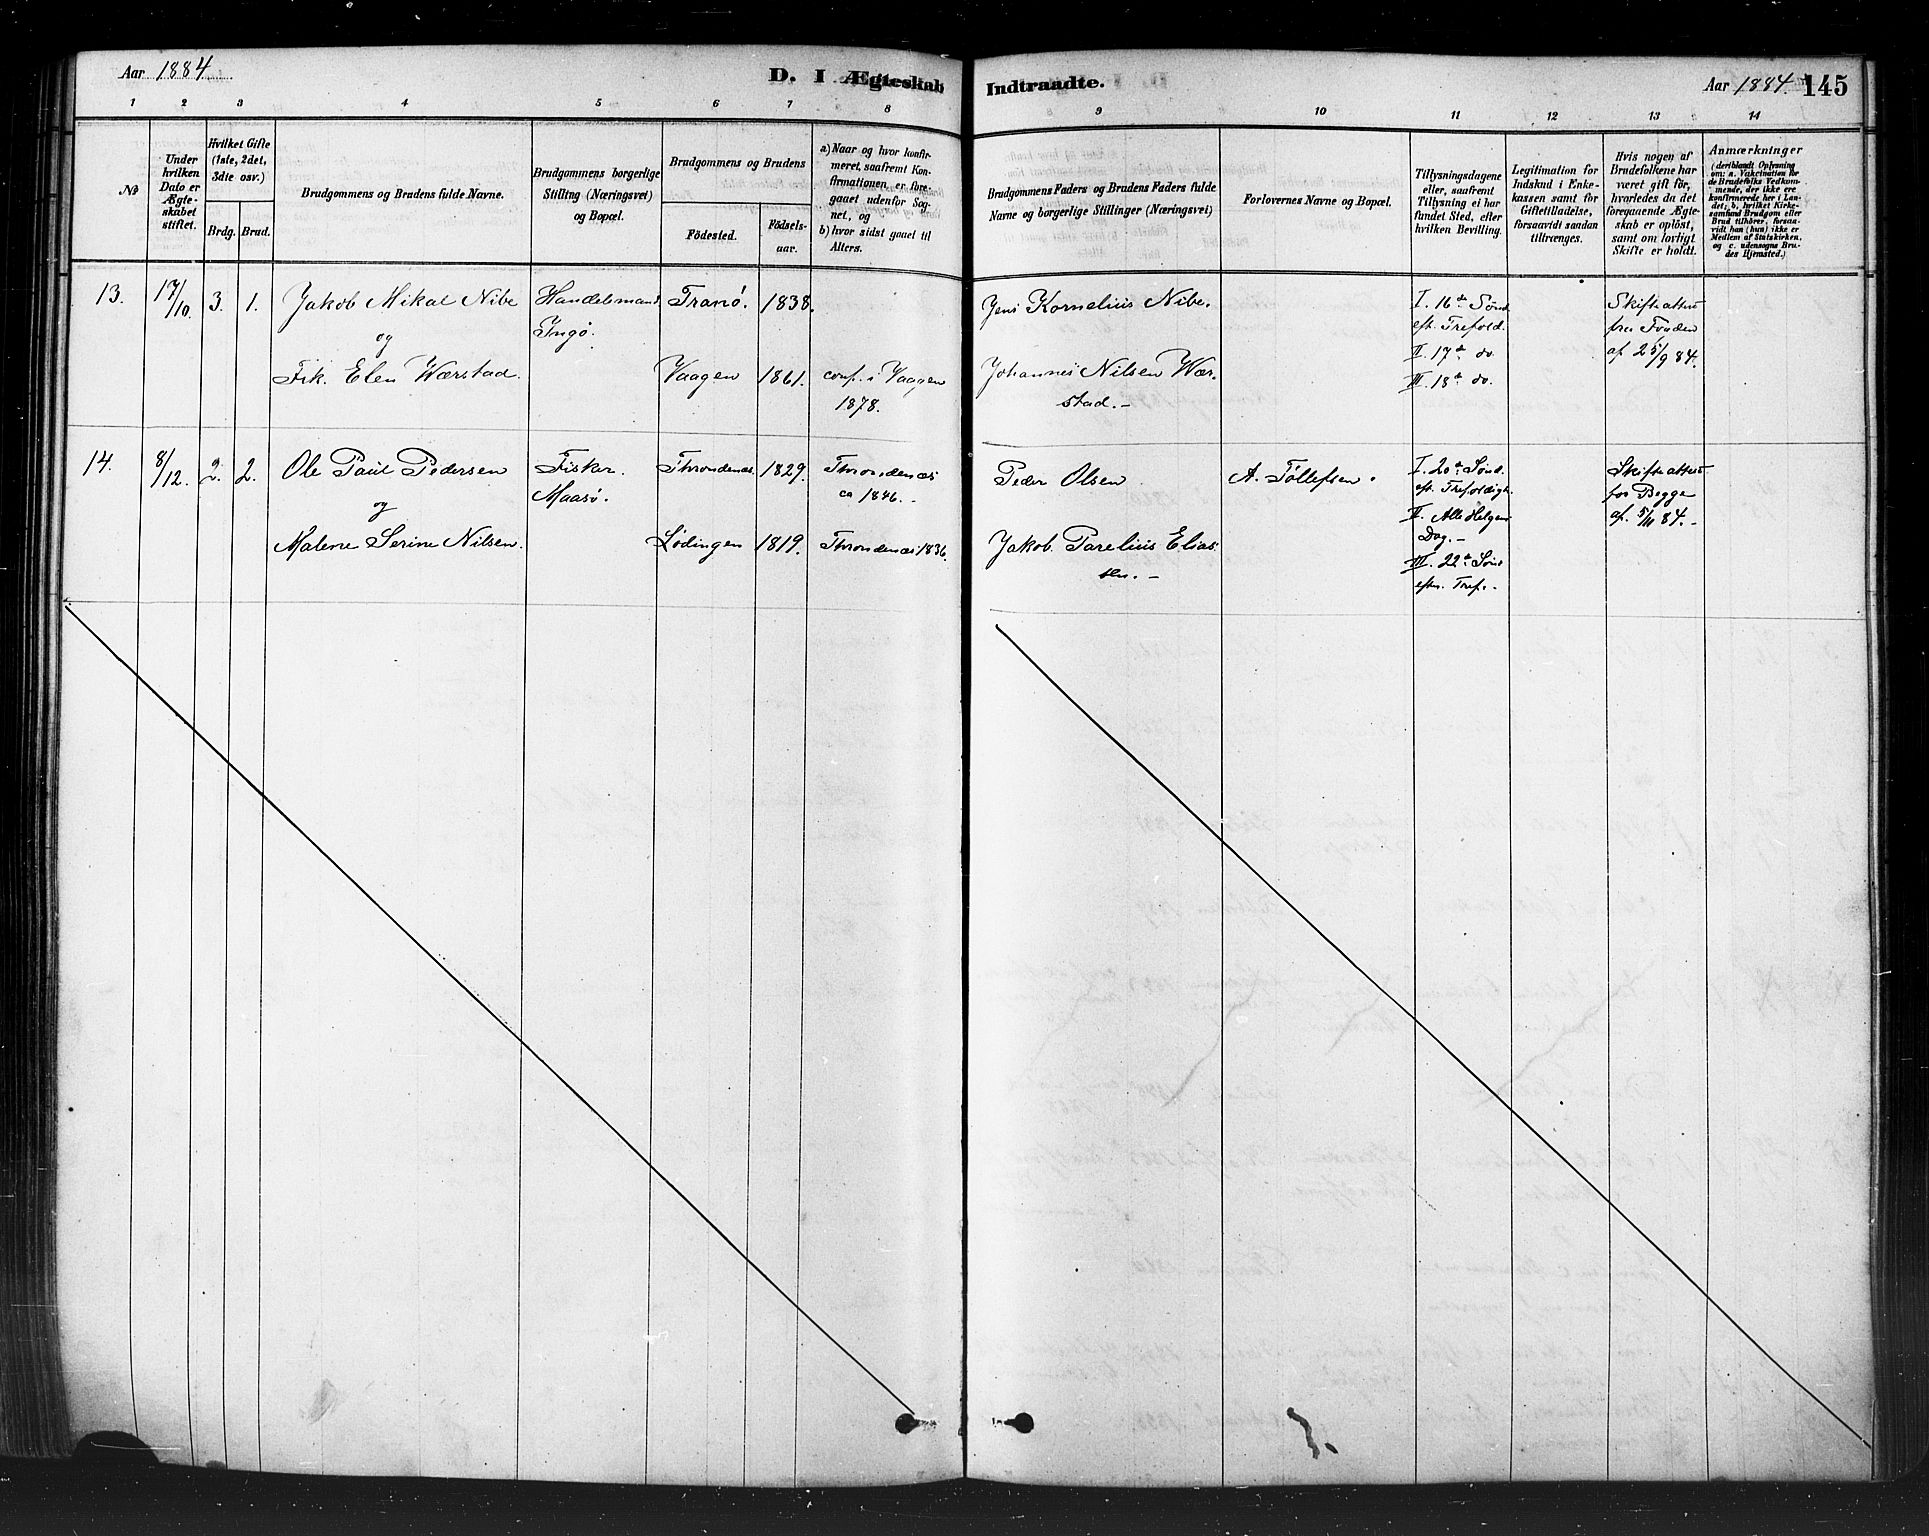 Aar 1884
D. I Ægteskab
Indtraadte.
Aar 1884.
145
1 2 3 4 5 6 7 8 9 10 11 12 13 14
No
Under
hvilken
Dato er
Ægte-
skabet
stiftet.
Hvilket Gifte
(1ste, 2det,
3die osv.)
Brdg. Brud.
Brudgommens og Brudens fulde Navne.
Brudgommens borgerlige
Stilling (Næringsvei)
og Bopæl.
Brudgommens og Brudens
Födested.
Födsels-
aar.
a) Naar og hvor konfir-
meret, saafremt Kon-
firmationen er fore-
gaaet udenfor Sog-
net, og
b) hvor sidst gaaet til
Alters.
Brudgommens Faders og Brudens Faders fulde
Navne og borgerlige Stillinger (Næringsvei)
Forlovernes Navne og Bopæl.
Tillysningsdagene
eller, saafremt
Tillysning ei har
fundet Sted, efter
hvilken Bevilling.
Legitimation for
Indskud i Enke-
kassen samt for
Giftetilladelse,
forsaavidt saadan
tiltrænges.
Hvis nogen af
Brudefolkene har
været gift för,
hvorledes da det
foregaaende Ægte-
skab er oplöst,
samt om lovligt
Skifte er holdt.
Anmærkninger
(deriblandt Oplysning
om: a. Vaccination for
de Brudefolks Vedkom-
mende, der ikke ere
konfirmerede her i Lan-
det; b. hvilket Kirke-
samfund Brudgom eller
Brud tilhörer, forsaa-
vidt han (hun) ikke er
Medlem af Statskirken,
og c. udensogns Bru-
des Hjemsted.)
13. 17/10. 3. 1. Jakob Mikal Nibe
og
Frk. Elen Wærstad.
Handelsmand
Ingø.
Tranö. 1838.
Vaagen 1861. conf. i Vaagen
1878.
Jens Kornelius Nibe.
Johannes Nilsen Wær-
stad. -
I. 16de Sønd
eft. Trefold.
II. 17de do.
III. 18de do.
Skifteattest
fra Fogden
af 25/9 84.
14. 8/12. 2. 2. Ole Paul Pedersen
og
Malene Serine Nilsen.
Fisker.
Maasö.
Throndenæs. 1829. Throndenæs
ca 1846. -
Lødingen 1819. Throndenæs 1836.
Peder Olsen
Jakob Parelius Elias-
sen. -
A. Töllefsen.
I. 20de Sønd.
eft. Trefoldigh.
II. Alle Helgens
Dag. -
III. 22de Sønd
efter. Tref. -
Skifteattest
for Begge
af. 5/11 84. -